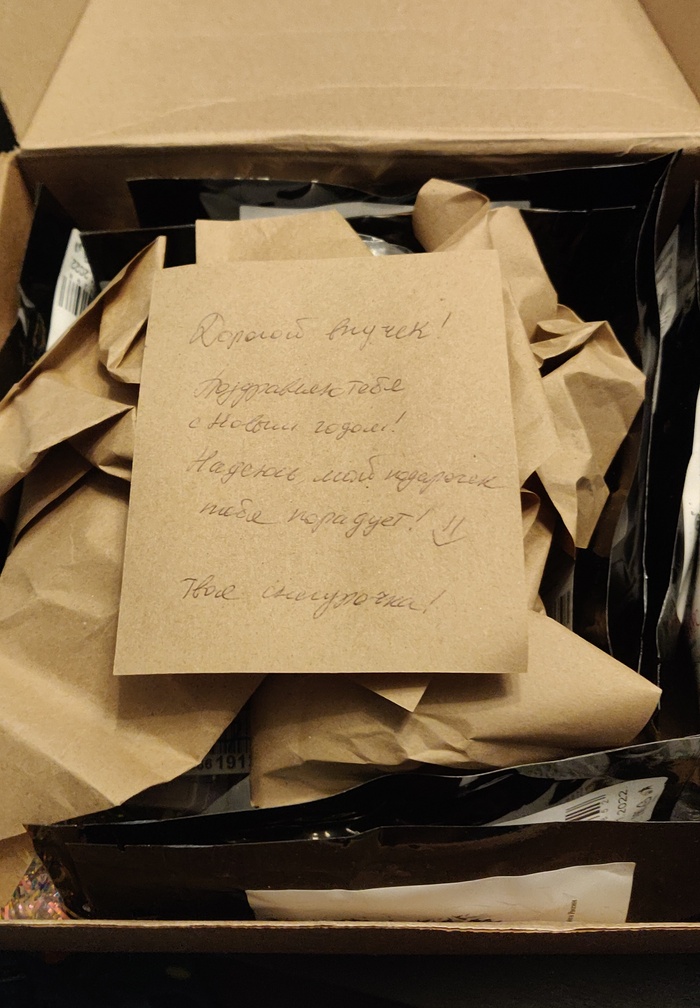 Дорогой внучек!
Поздравляю тебя
с Новым годом!
Надеюсь мой подарочек
тебя порадует! :)
Твоя снегурочка!
2022
191
2022